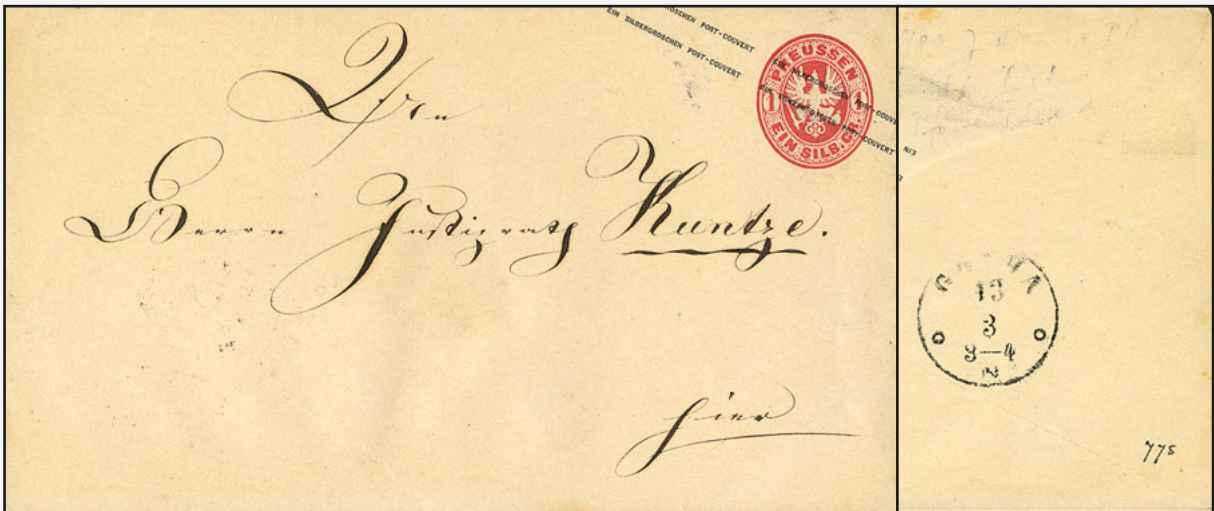 EIN SILBERGROSCHEN POST-COUVERT
EIN SILBERGROSCHEN POST-COUVERT
PREUSSEN
1 1
EIN SILB.GR.
Herrn Justizrath Kuntze.
hier
13
3
3—4
N
775